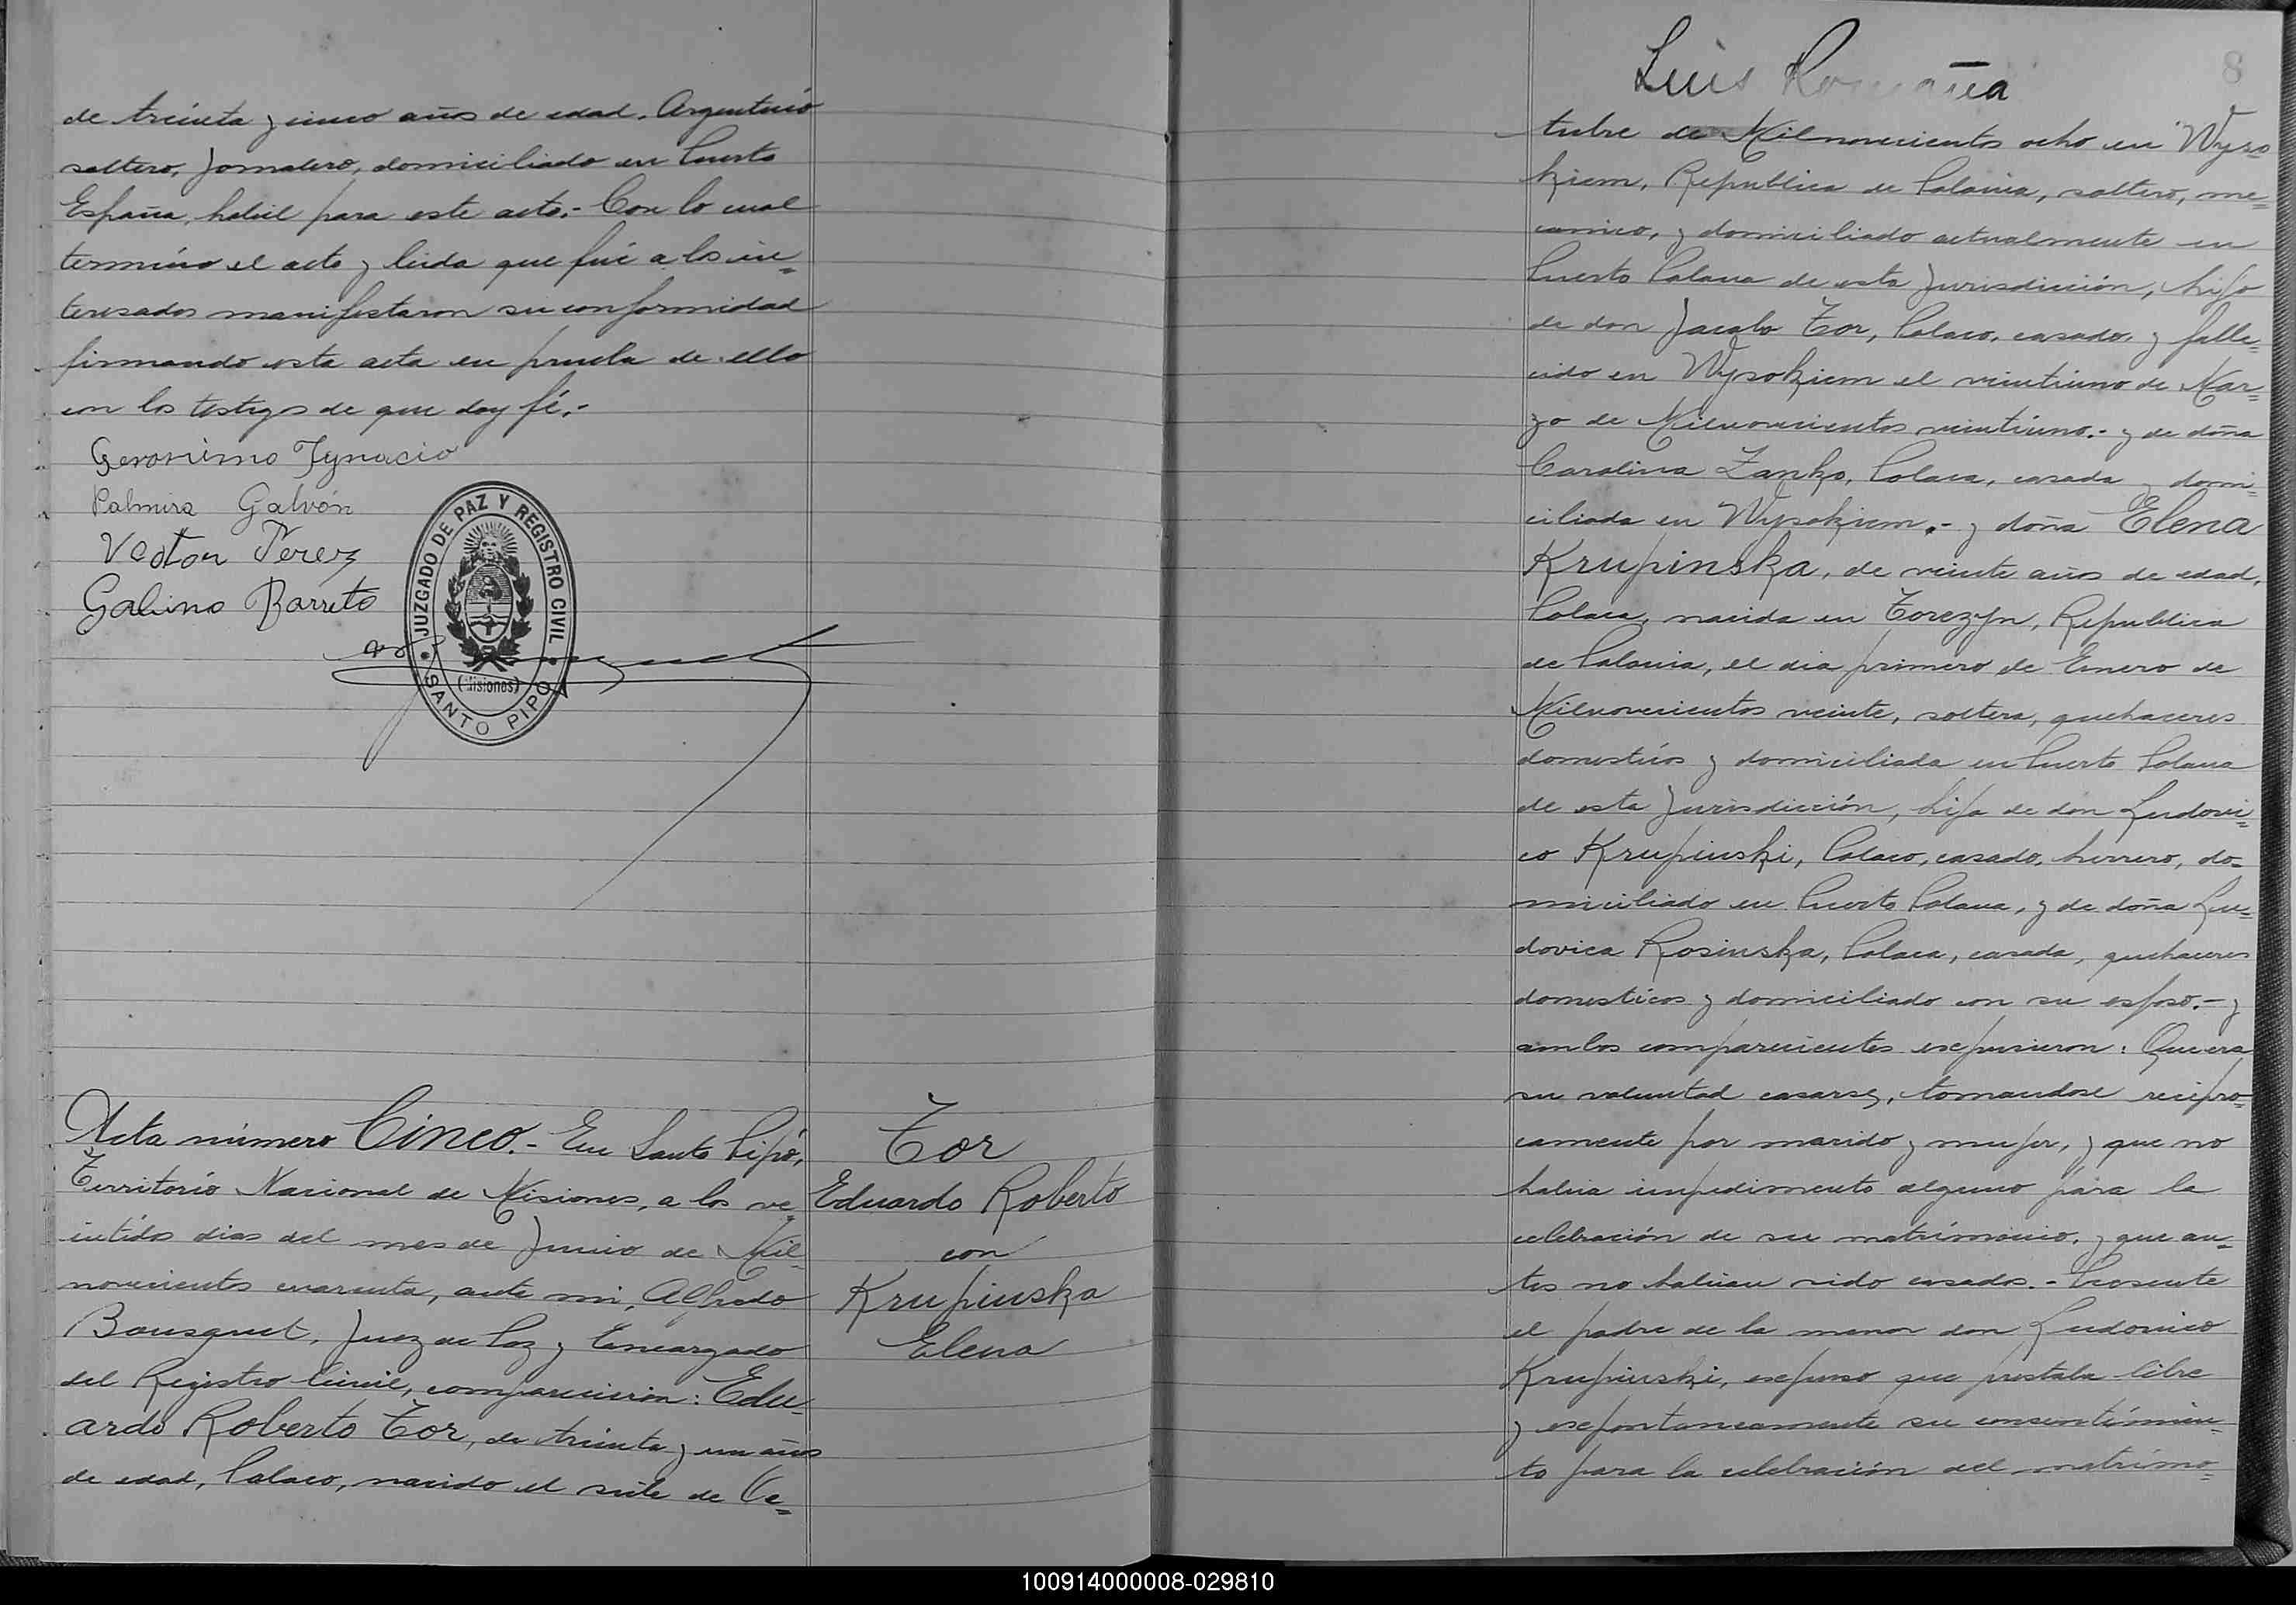 de treinta y cinco años de edad. Argentino
soltero, Jornalero, domiciliado en Puerto
España, habil para este acto.- Con lo cual
terminó el acto y leida que fué a los in=
teresados manifestaron su conformidad
firmando esta acta en prueba de ello
con los testigos de que doy fé.-
Geronimo Ygnacio
Palmira Galvón
Vector Perez
Galino Barreto
JUZGADO DE PAZ Y REGISTRO CIVIL
(Misiones)
SANTO PIPO
Acta número Cinco.- En Santo Pipó,
Territorio Nacional de Misiones, a los ve=
intidos dias del mes de Junio de Mil
novecientos cuarenta, ante mi, Alfredo
Bousquet, Juez de Paz y Encargado
del Registro Civil, comparecieron: Edu=
ardo Roberto Tor, de treinta y un años
de edad, Polaco, nacido el siete de Oc=
Tor
Eduardo Roberto
con
Krupinska
Elena
Luis Romaña
8
tubre de Milnovecientos ocho en Wyso=
kiem, Republica de Polonia, soltero, me=
canico, y domiciliado actualmente en
Puerto Polana de esta Jurisdicción, hijo
de don Jacobo Tor, Polaco, casado, y falle=
cido en Wysokiem el veintiuno de Mar=
zo de Milnovecientos veintiuno.- y de doña
Carolina Zanko, Polaca, casada y domi=
ciliada en Wysokiem.- y doña Elena
Krupinska, de veinte años de edad,
Polaca, nacida en Torczyn, Republica
de Polonia, el dia primero de Enero de
Milnovecientos veinte, soltera, quehaceres
domesticos y domiciliada en Puerto Polana
de esta Jurisdicción, hija de don Ludovi=
co Krupinski, Polaco, casado, herrero, do=
miciliado en Puerto Polana, y de doña Lu=
dovica Rosinska, Polaca, casada, quehaceres
domesticos y domiciliado con su esposo.- y
ambos comparecientes expusieron: Que era
su voluntad casarse, tomandose recipro=
camente por marido y mujer, y que no
habia impedimento alguno para la
celebración de su matrimonio, y que an=
tes no habian sido casados.- Presente
el padre de la menor don Ludovico
Krupinski, expuso que prestaba libre
y expontaneamente su consentimien=
to para la celebración del matrimo=
100914000008-029810